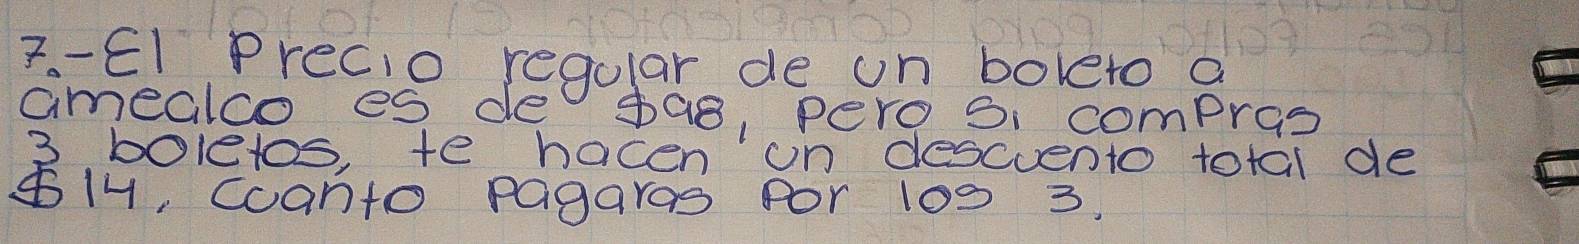 7.-El Precio regular de un boleto a
amealco es de $98, pero si compras
3 boletos, te hacen un descuento total de
$14, cuanto pagaras por los 3.